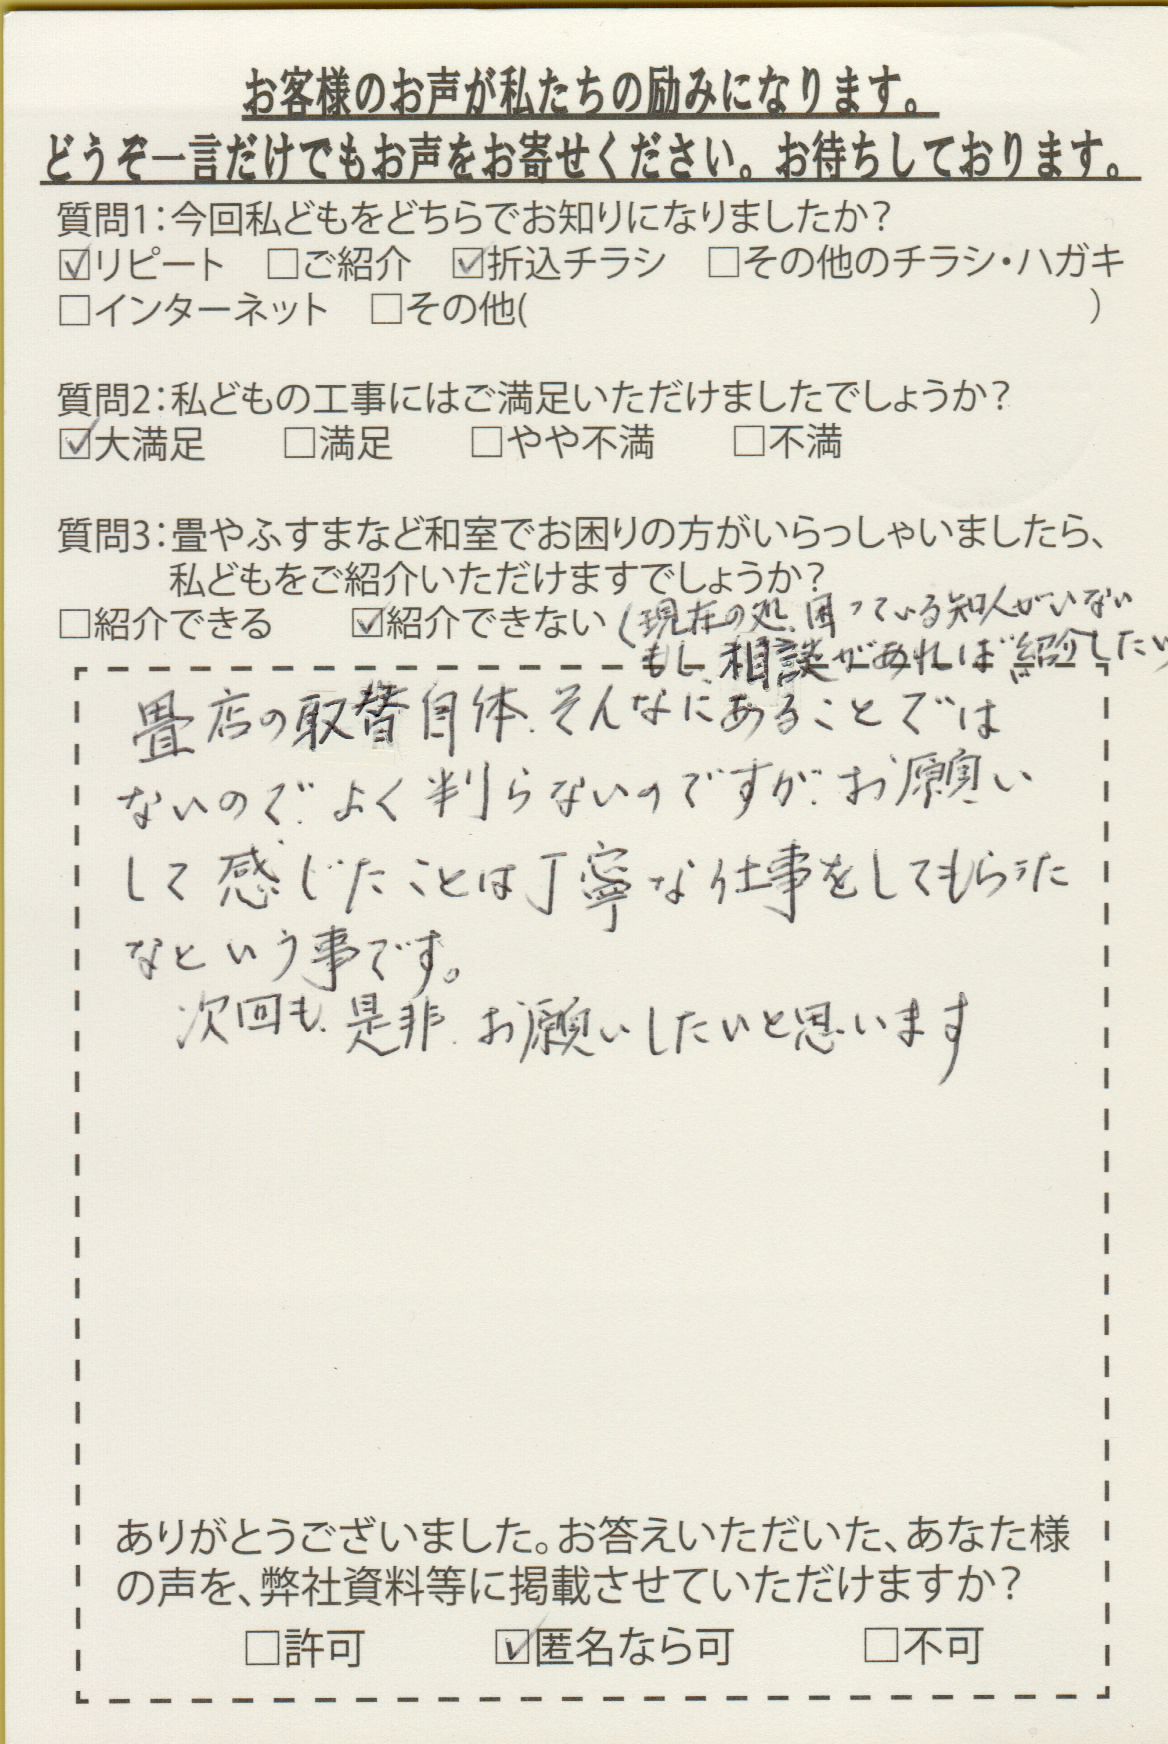 お客様のお声が私たちの励みになります。
どうぞ一言だけでもお声をお寄せください。お待ちしております。
質問1：今回私どもをどちらでお知りになりましたか？
☑リピート □ご紹介 ☑折込チラシ □その他のチラシ・ハガキ
□インターネット □その他( )
質問2：私どもの工事にはご満足いただけましたでしょうか？
☑大満足 □満足 □やや不満 □不満
質問3：畳やふすまなど和室でお困りの方がいらっしゃいましたら、
私どもをご紹介いただけますでしょうか？
□紹介できる ☑紹介できない (現在の処、困っている知人がいない
もし、相談があれば紹介したい
畳店の取替自体、そんなにあることでは
ないので、よく判らないのですが、お願い
して感じたことは丁寧な仕事をしてもらった
なという事です。
次回も、是非、お願いしたいと思います
ありがとうございました。お答えいただいた、あなた様
の声を、弊社資料等に掲載させていただけますか？
□許可 ☑匿名なら可 □不可